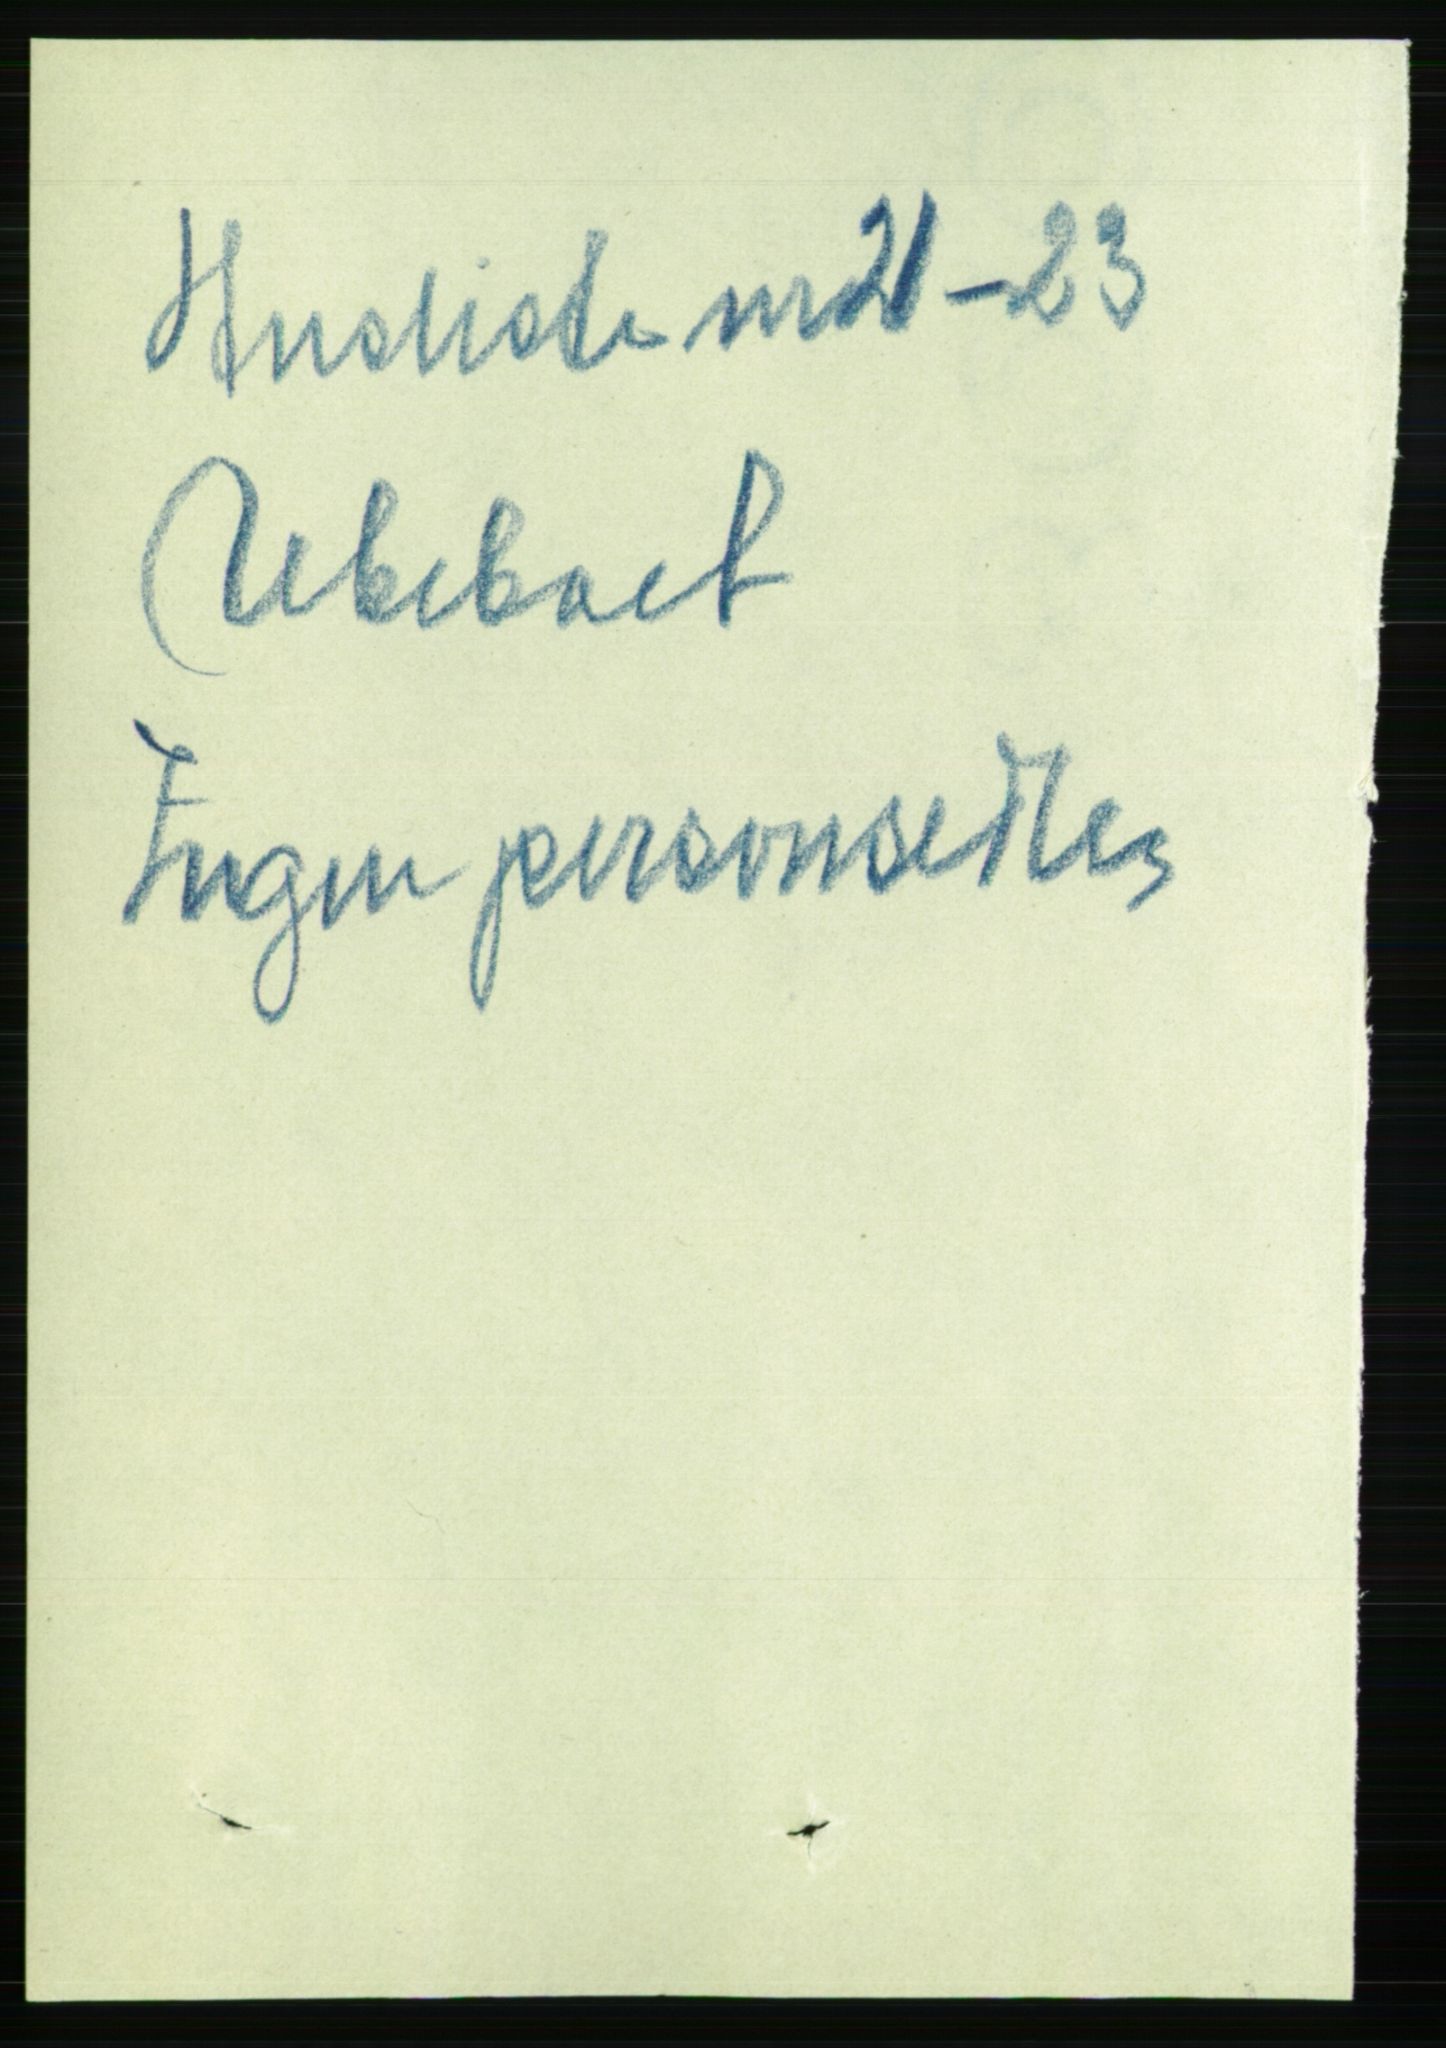 Husliste nr 21-23
Ubeboet
Ingen personsedler